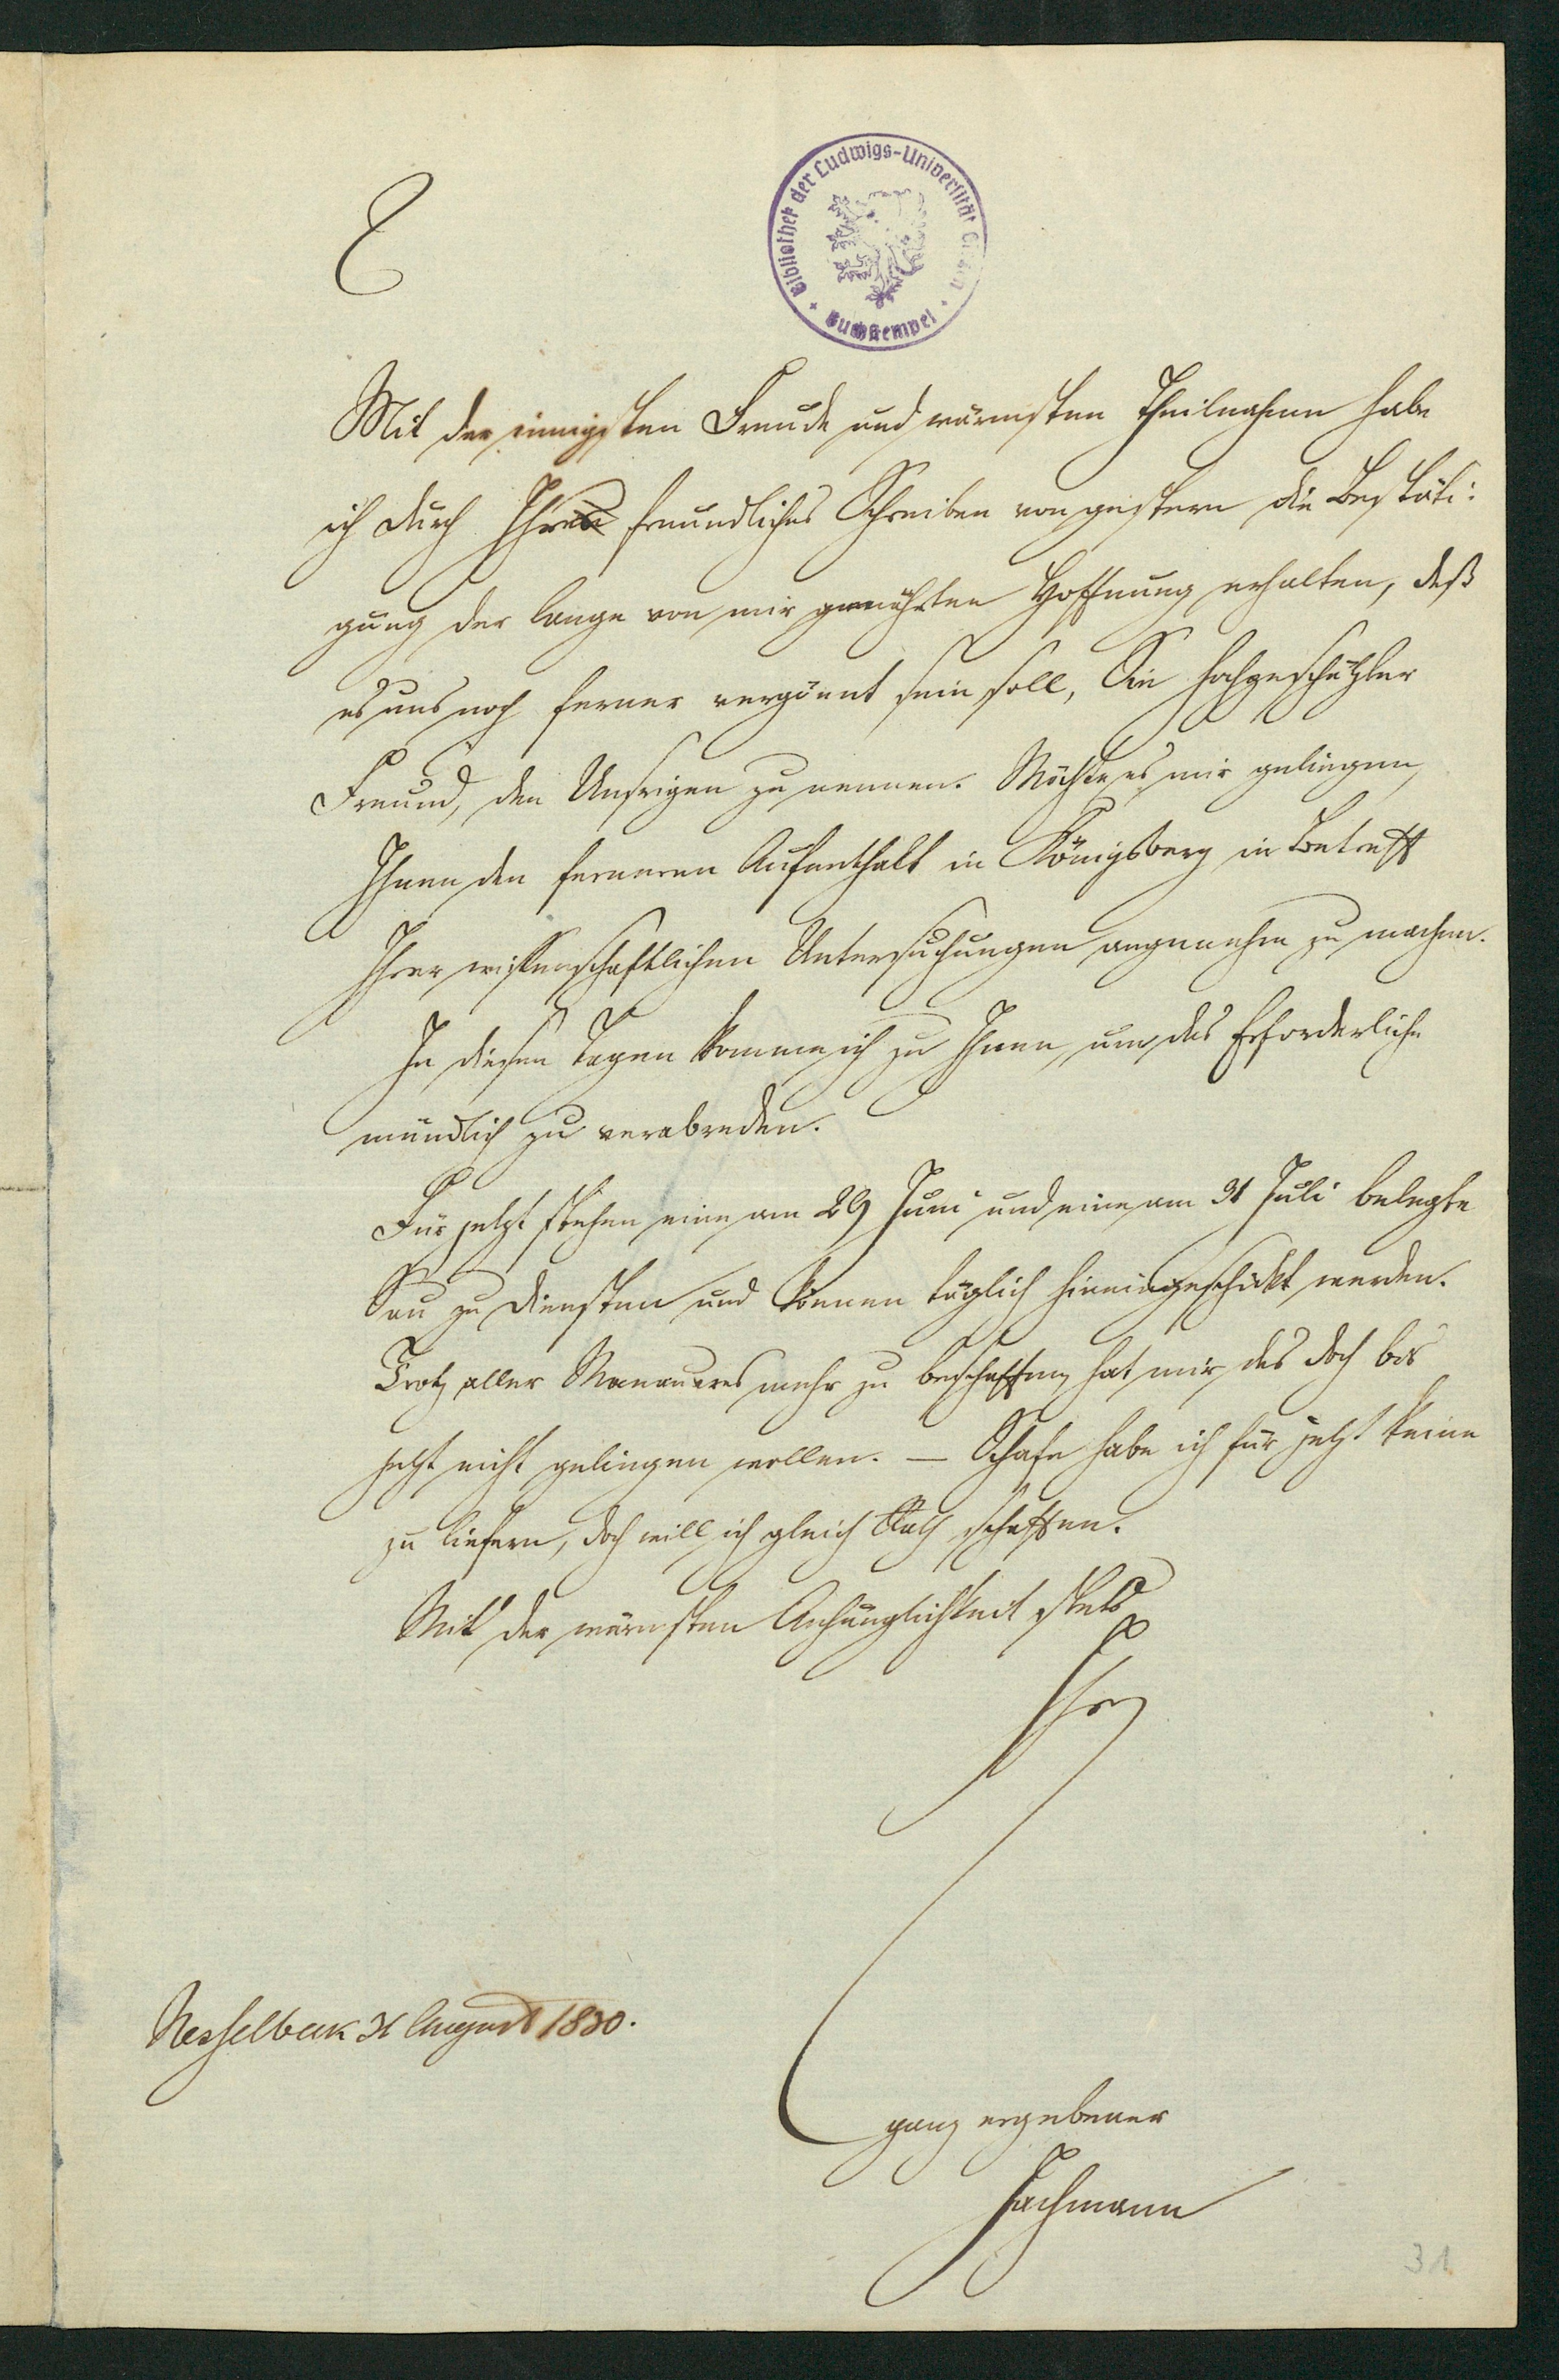 Bibliothek der Ludwigs-Universität Gießen
Buchstempel
Mit der innigsten Freude und wärmsten Theilnahme habe
ich durch Ihr freundliches Schreiben von gestern die Bestäti:
gung der lange von mir genährten Hoffnung erhalten, daß
es uns noch ferner vergönnt sein soll, Sie hochgeschätzter
Freund, den Unsrigen zu nennen. Möchte es mir gelingen,
Ihnen den ferneren Aufenthalt in Königsberg in Betreff
Ihrer wissenschaftlichen Untersuchungen angenehm zu machen.
In diesen Tagen komme ich zu Ihnen, um das Erforderliche
mündlich zu verabreden.
Für jetzt stehen eine am 29 Juni und eine am 31 Juli belegte
Sau zu Diensten und können täglich hineingeschickt werden.
Trotz aller Manoeuvres mehr zu beschaffen, hat mir das doch bis
jetzt nicht gelingen wollen. — Schafe habe ich für jetzt keine
zu liefern, doch will ich gleich Rath schaffen.
Mit der wärmsten Anhänglichkeit stets
Ihr
Nesselbeck 31 August 1830.
ganz ergebener
Jachmann
31